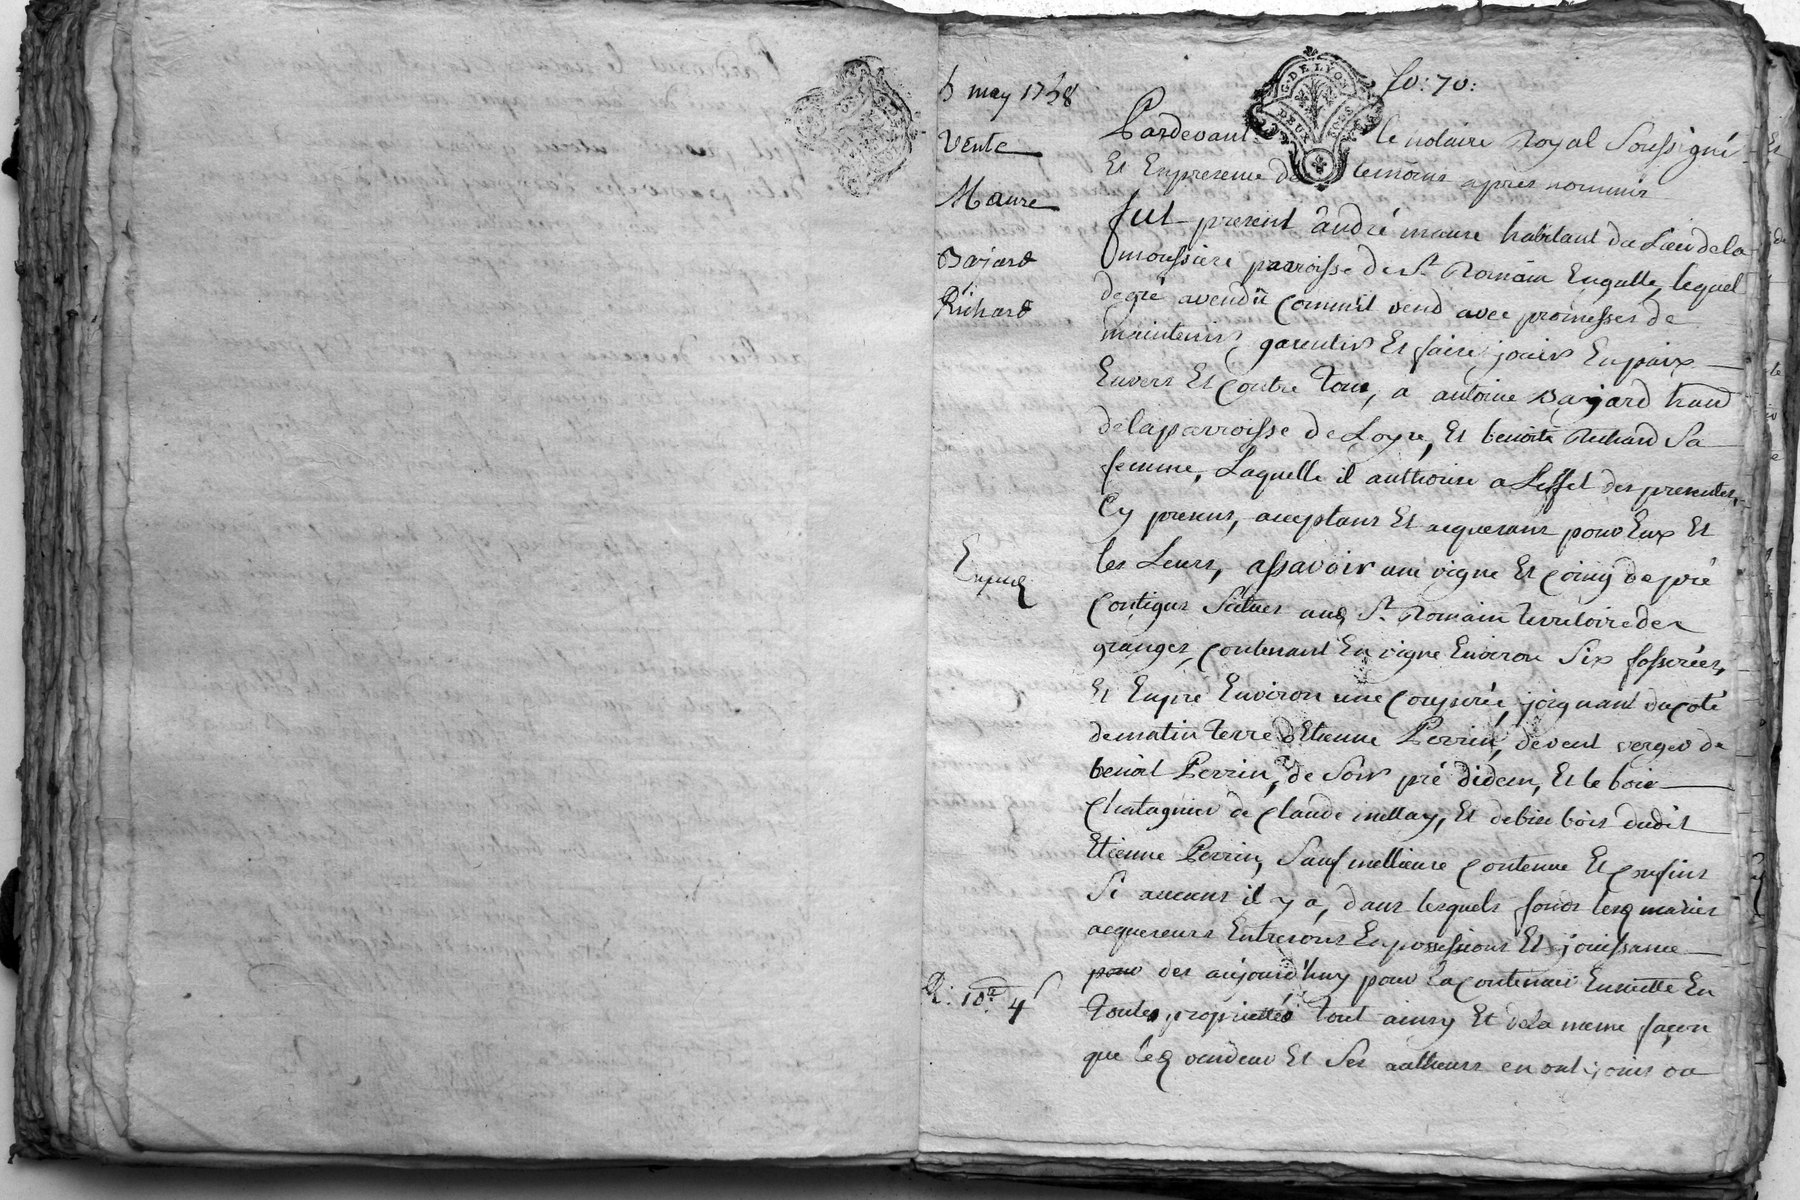 5 may 1738
Vente
Maure
Bajard
Richard
Expedié
R: 10ll 4s
fo: 70:
G. DE LYON
DEUX SOLS
Pardevant le notaire Royal Soussigné
Et Enpresence de temoins apres nommés
fut present andré maure habitant du Lieu dela
moussiere parroisse de St Romain Engalle, lequel
degré a vendû comm'il vend avec promesses de
maintenir, garentir Et faire jouir En paix
Envers Et Contre Tous, a antoine Bajard hant
delaparroisse de Loyre, Et benoite Richard Sa
femme, Laquelle il authorise a Leffet des presentes,
Cy presens, acceptans Et acquerans pour Eux Et
les Leurs, assavoir une vigne Et Coing de pré
Contigus Scitués aud St Romain territoire des
granges, Contenant En vigne Environ Six fosserées,
Et Enpré Environ une Couperée, joignant ducoté
de matin terre dEtienne Perrin, de vent verger de
benoit Perrin, de Soir pré didem, Et le bois
Chatagnier de Claude mellay, Et debise bois dudit
Etienne Perrin, Sauf mellieure Contenue Et Confins
Si aucuns il y a, dans lesquels fonds lesd mariés
acquereurs Entreront En possessions Et jouissance
pour des aujourd'huy pour la Contenue Ensuitte En
Toutes proprietées Tout ainsy Et dela meme façon
que led vendeur Et Ses autheurs en ont jouis ou